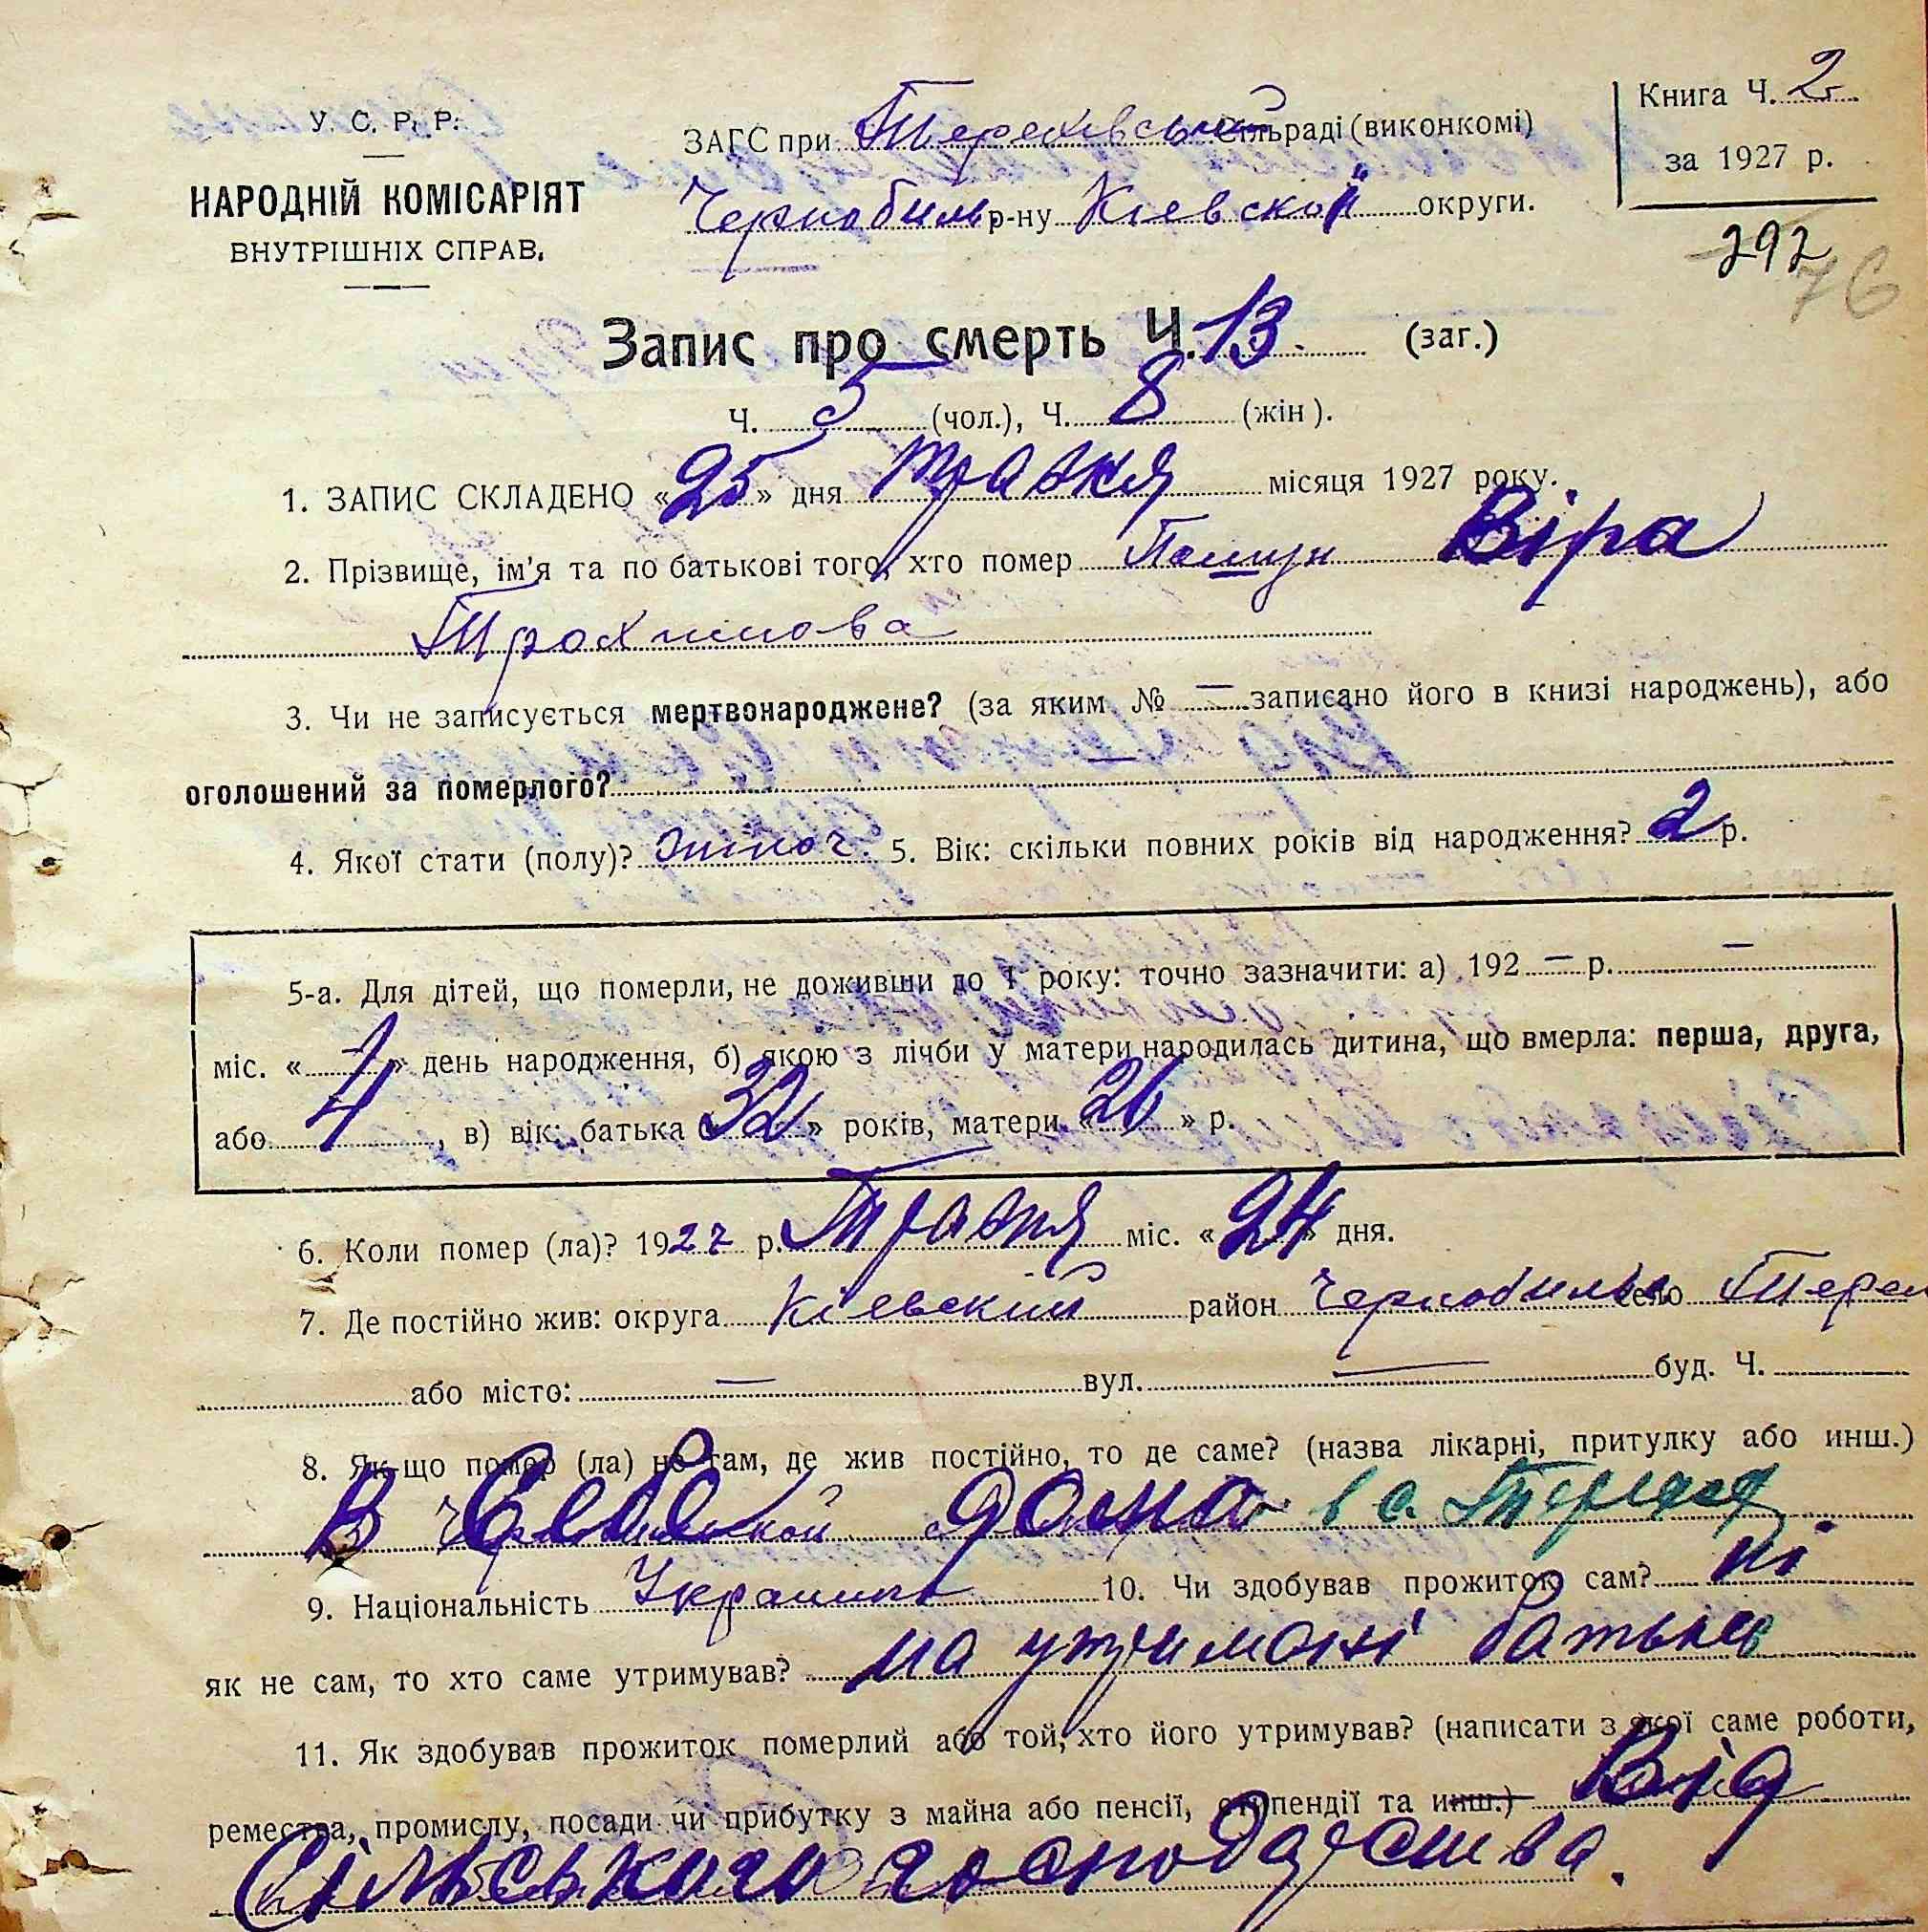 У. С. Р. Р.
НАРОДНІЙ КОМІСАРІЯТ
ВНУТРІШНІХ СПРАВ.
ЗАГС при Терехівській сільраді (виконкомі)
Чернобиль р-ну Кіевской округи.
Книга Ч. 2
за 1927 р.
292
76
Запис про смерть Ч. 13 (заг.)
Ч. 5 (чол.), Ч. 8 (жін).
1. ЗАПИС СКЛАДЕНО «25» дня травня місяця 1927 року.
2. Прізвище, ім'я та по батькові того, хто помер Віра
Трохимова
3. Чи не записується мертвонароджене? (за яким № — записано його в книзі народжень), або
оголошений за померлого? —
4. Якої стати (полу)? жіноч. 5. Вік: скільки повних років від народження? 2 р.
5-а. Для дітей, що померли, не доживши до 1 року: точно зазначити: а) 192 — р. —
міс. « » день народження, б) якою з лічби у матери народилась дитина, що вмерла: перша, друга,
або 4, в) вік: батька «32» років, матери «26» р.
6. Коли помер (ла)? 1927 р. Травня міс. «24» дня.
7. Де постійно жив: округа Кіевский район Чернобиль село Терех
або місто: — вул. — буд. Ч.
8. Як-що помер (ла) не там, де жив постійно, то де саме? (назва лікарні, притулку або инш.)
В себе дома в с. Терехах
9. Національність 10. Чи здобував прожиток сам? ні
як не сам, то хто саме утримував? на утримані батька
11. Як здобував прожиток померлий або той, хто його утримував? (написати з якої саме роботи,
ремества, промислу, посади чи прибутку з майна або пенсії, стипендії та инш.) Від
Сільського господарства.